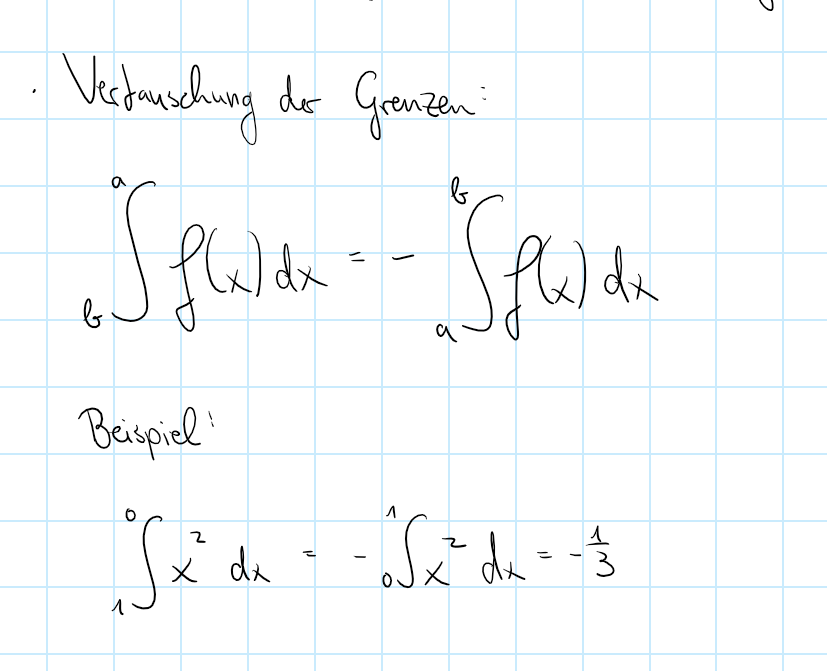 · Vertauschung der Grenzen:
∫_b^a f(x) dx = - ∫_a^b f(x) dx
Beispiel:
∫_1^0 x² dx = - ∫_0^1 x² dx = - 1/3